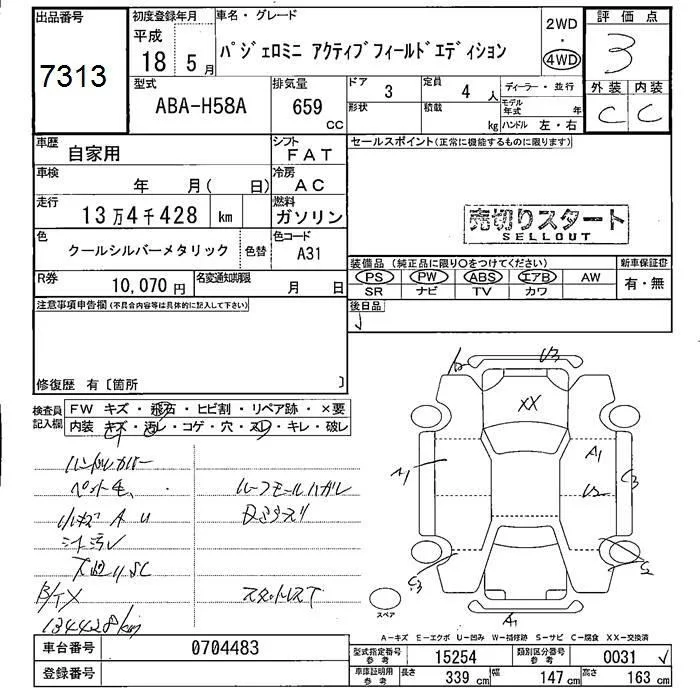 出品番号
7313
初度登録年月
平成
18 5月
車名・グレード
パジェロミニ アクティブフィールドエディション
2WD
・
4WD
評価点
3
外装 内装
C C
型式
ABA-H58A
排気量
659
CC
ドア
3
定員
4 人
形状
積載
kg
ディーラー・並行
モデル年式 年
ハンドル 左・右
車歴
自家用
シフト
FAT
車検
年 月( 日)
冷房
AC
走行
13万4千428 km
燃料
ガソリン
色
クールシルバーメタリック
色替
色コード
A31
R券
10,070 円
名変通知期限
月 日
セールスポイント(正常に機能するものに限ります)
売切りスタート
SELLOUT
装備品(純正品に限り○をつけてください)
PS PW ABS エアB AW
SR ナビ TV カワ
新車保証書
有・無
後日品
注意事項申告欄(不具合内容等は具体的に記入して下さい)
修復歴 有〔箇所 〕
検査員記入欄
FW キズ・飛石・ヒビ割・リペア跡・×要
内装 キズ・汚レ・コゲ・穴・スレ・キレ・破レ
ハンドルカバー
ペット毛、
ルーフモールハガレ
小キズ A U
シート汚レ
スタットレスT
134428km
U3
XX
A1
A1
U2
C3
C3
S2
A1
スペア
A-キズ E-エクボ U-凹み W-補修跡 S-サビ C-腐食 XX-交換済
車台番号
0704483
登録番号
型式指定番号
参考
15254
類別区分番号
参考
0031
車庫証明用
参考
長さ 339 cm
幅 147 cm
高さ 163 cm